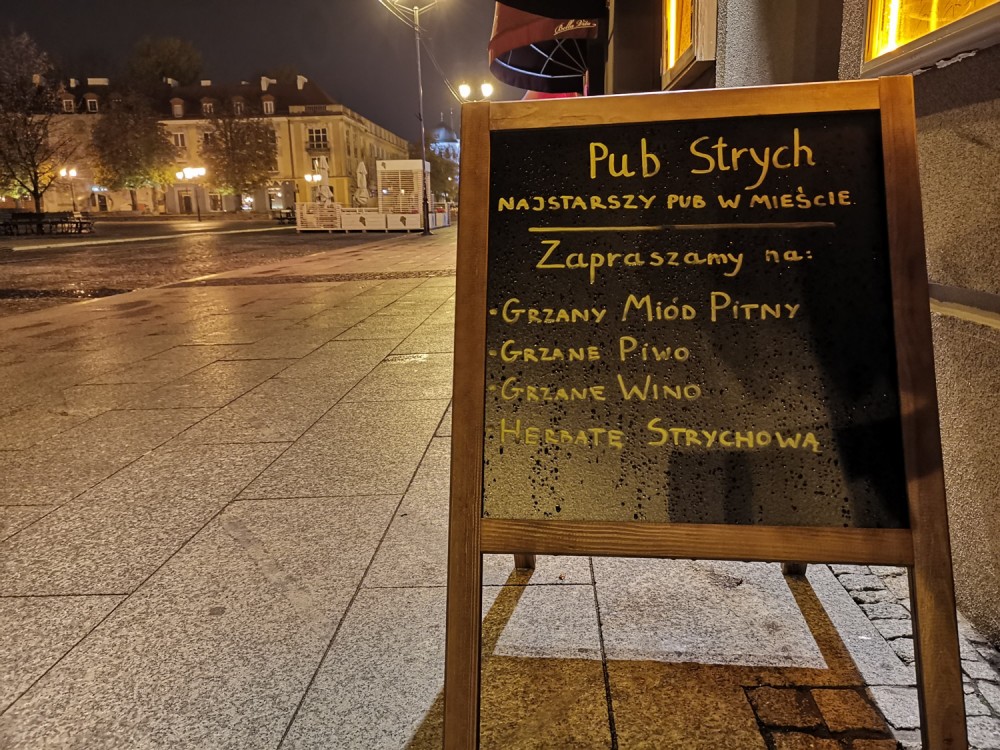 Bella Vita
Pub Strych
NAJSTARSZY PUB W MIEŚCIE
Zapraszamy na:
• GRZANY MIÓD PITNY
• GRZANE PIWO
• GRZANE WINO
• HERBATĘ STRYCHOWĄ